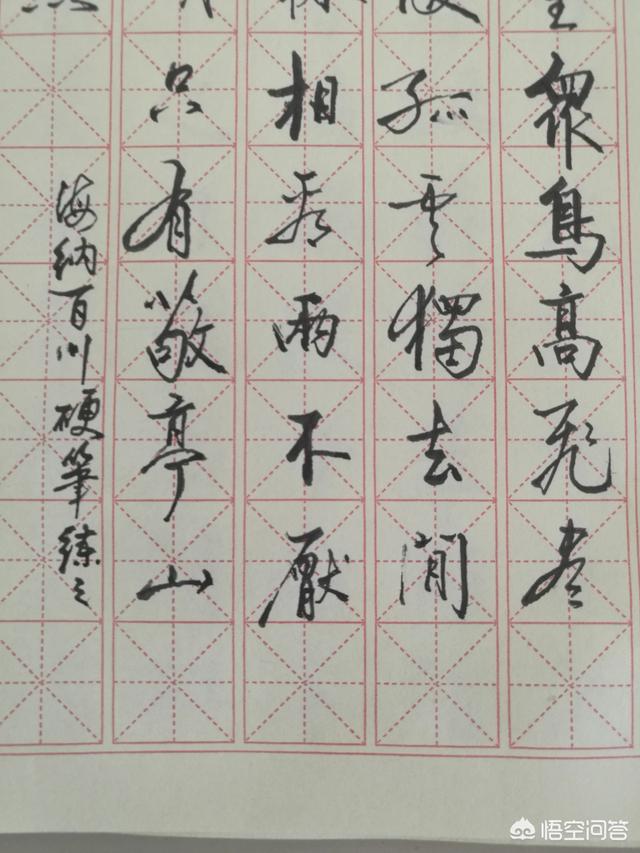 眾鳥高飛盡
孤雲獨去閒
相看兩不厭
只有敬亭山
海納百川硬筆練之
悟空问答